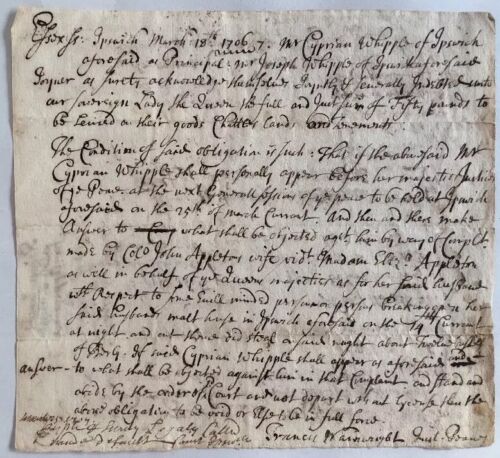 Essex Ss: Ipswich March 18th 1706/7. Mr Cyprian Whipple of Ipswich
aforesaid as Principal & Mr Joseph Whipple of Ipswich aforesaid
Joyner as surety acknowledge themselves Joyntly & severally Indebted unto
our sovereign Lady the Queen the full and Just sum of Fifty pounds to
be levied on their goods Chattles lands and tenements.
The Condition of said obligation is such: That if the abovesaid Mr
Cyprian Whipple shall personally appear before her majesties Justices
of ye Peace at the next Generall sessions of ye peace to be held at Ipswich
aforesaid on the 25th of march Current. And then and there make
Answer to what shall be objected agst him by way of Complt
made by Colo John Appleton wife vidt Madam Eliz: Appleton
as well in behalf of ye Queens majestie as for her said husband
wth Respect to some Evill minded person or persons breaking open her
said husbands malt house in Ipswich aforesaid on the Current
at night and out thence did steal on said night about twelve
of said Cyprian Whipple shall appear as aforesaid and
answer to what shall be objected against him in that Complaint and stand and
abide by the order of sd Court and not depart without lycense then the
above obligation to be void or Else to be in full force.
Francis Wainwright Just. Peace